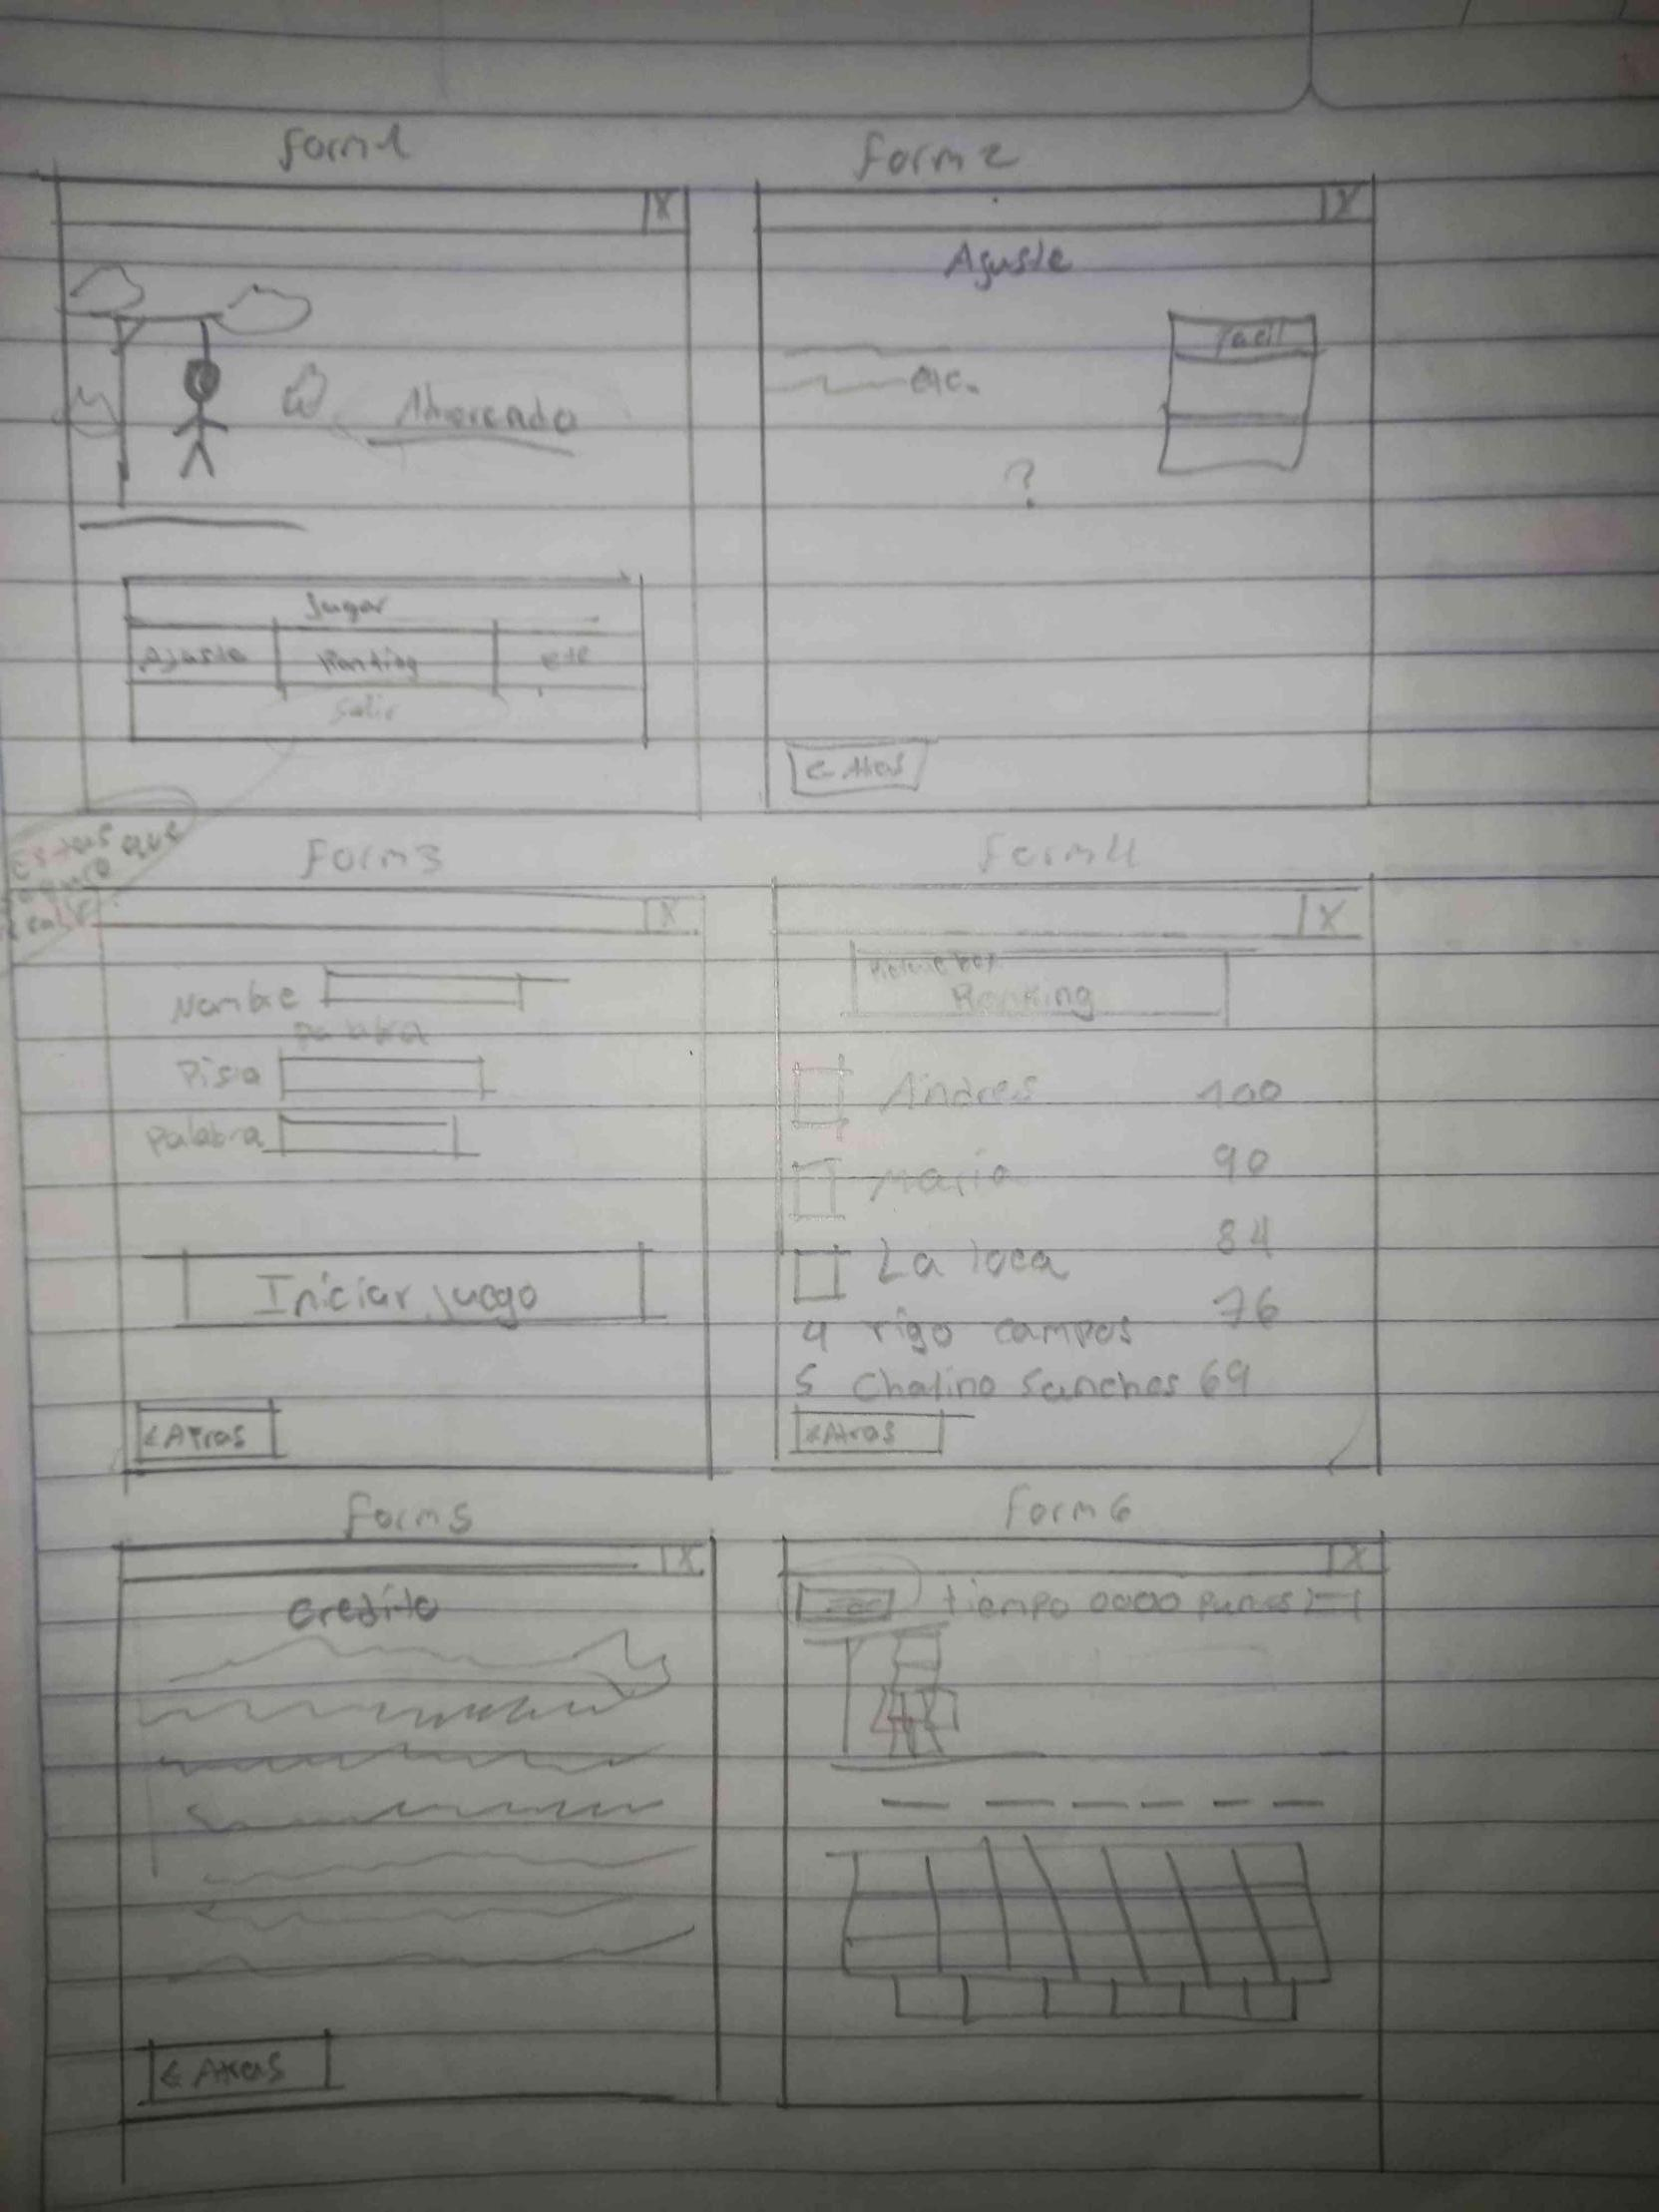 Form1
X
Ahorcado
Jugar
Ajuste Ranking etc
Salir
Form2
X
Ajuste
Facil
etc.
?
← Atras
Estas que
salir
Form3
X
Nombre
palabra
Pista
Palabra
Iniciar juego
< Atras
Form4
X
Picture box
Ranking
Andres 100
Maria 90
La loca 84
4 rigo campos 76
5 Chalino Sanches 69
< Atras
Form5
X
Credito
← Atras
Form6
X
tiempo 0000